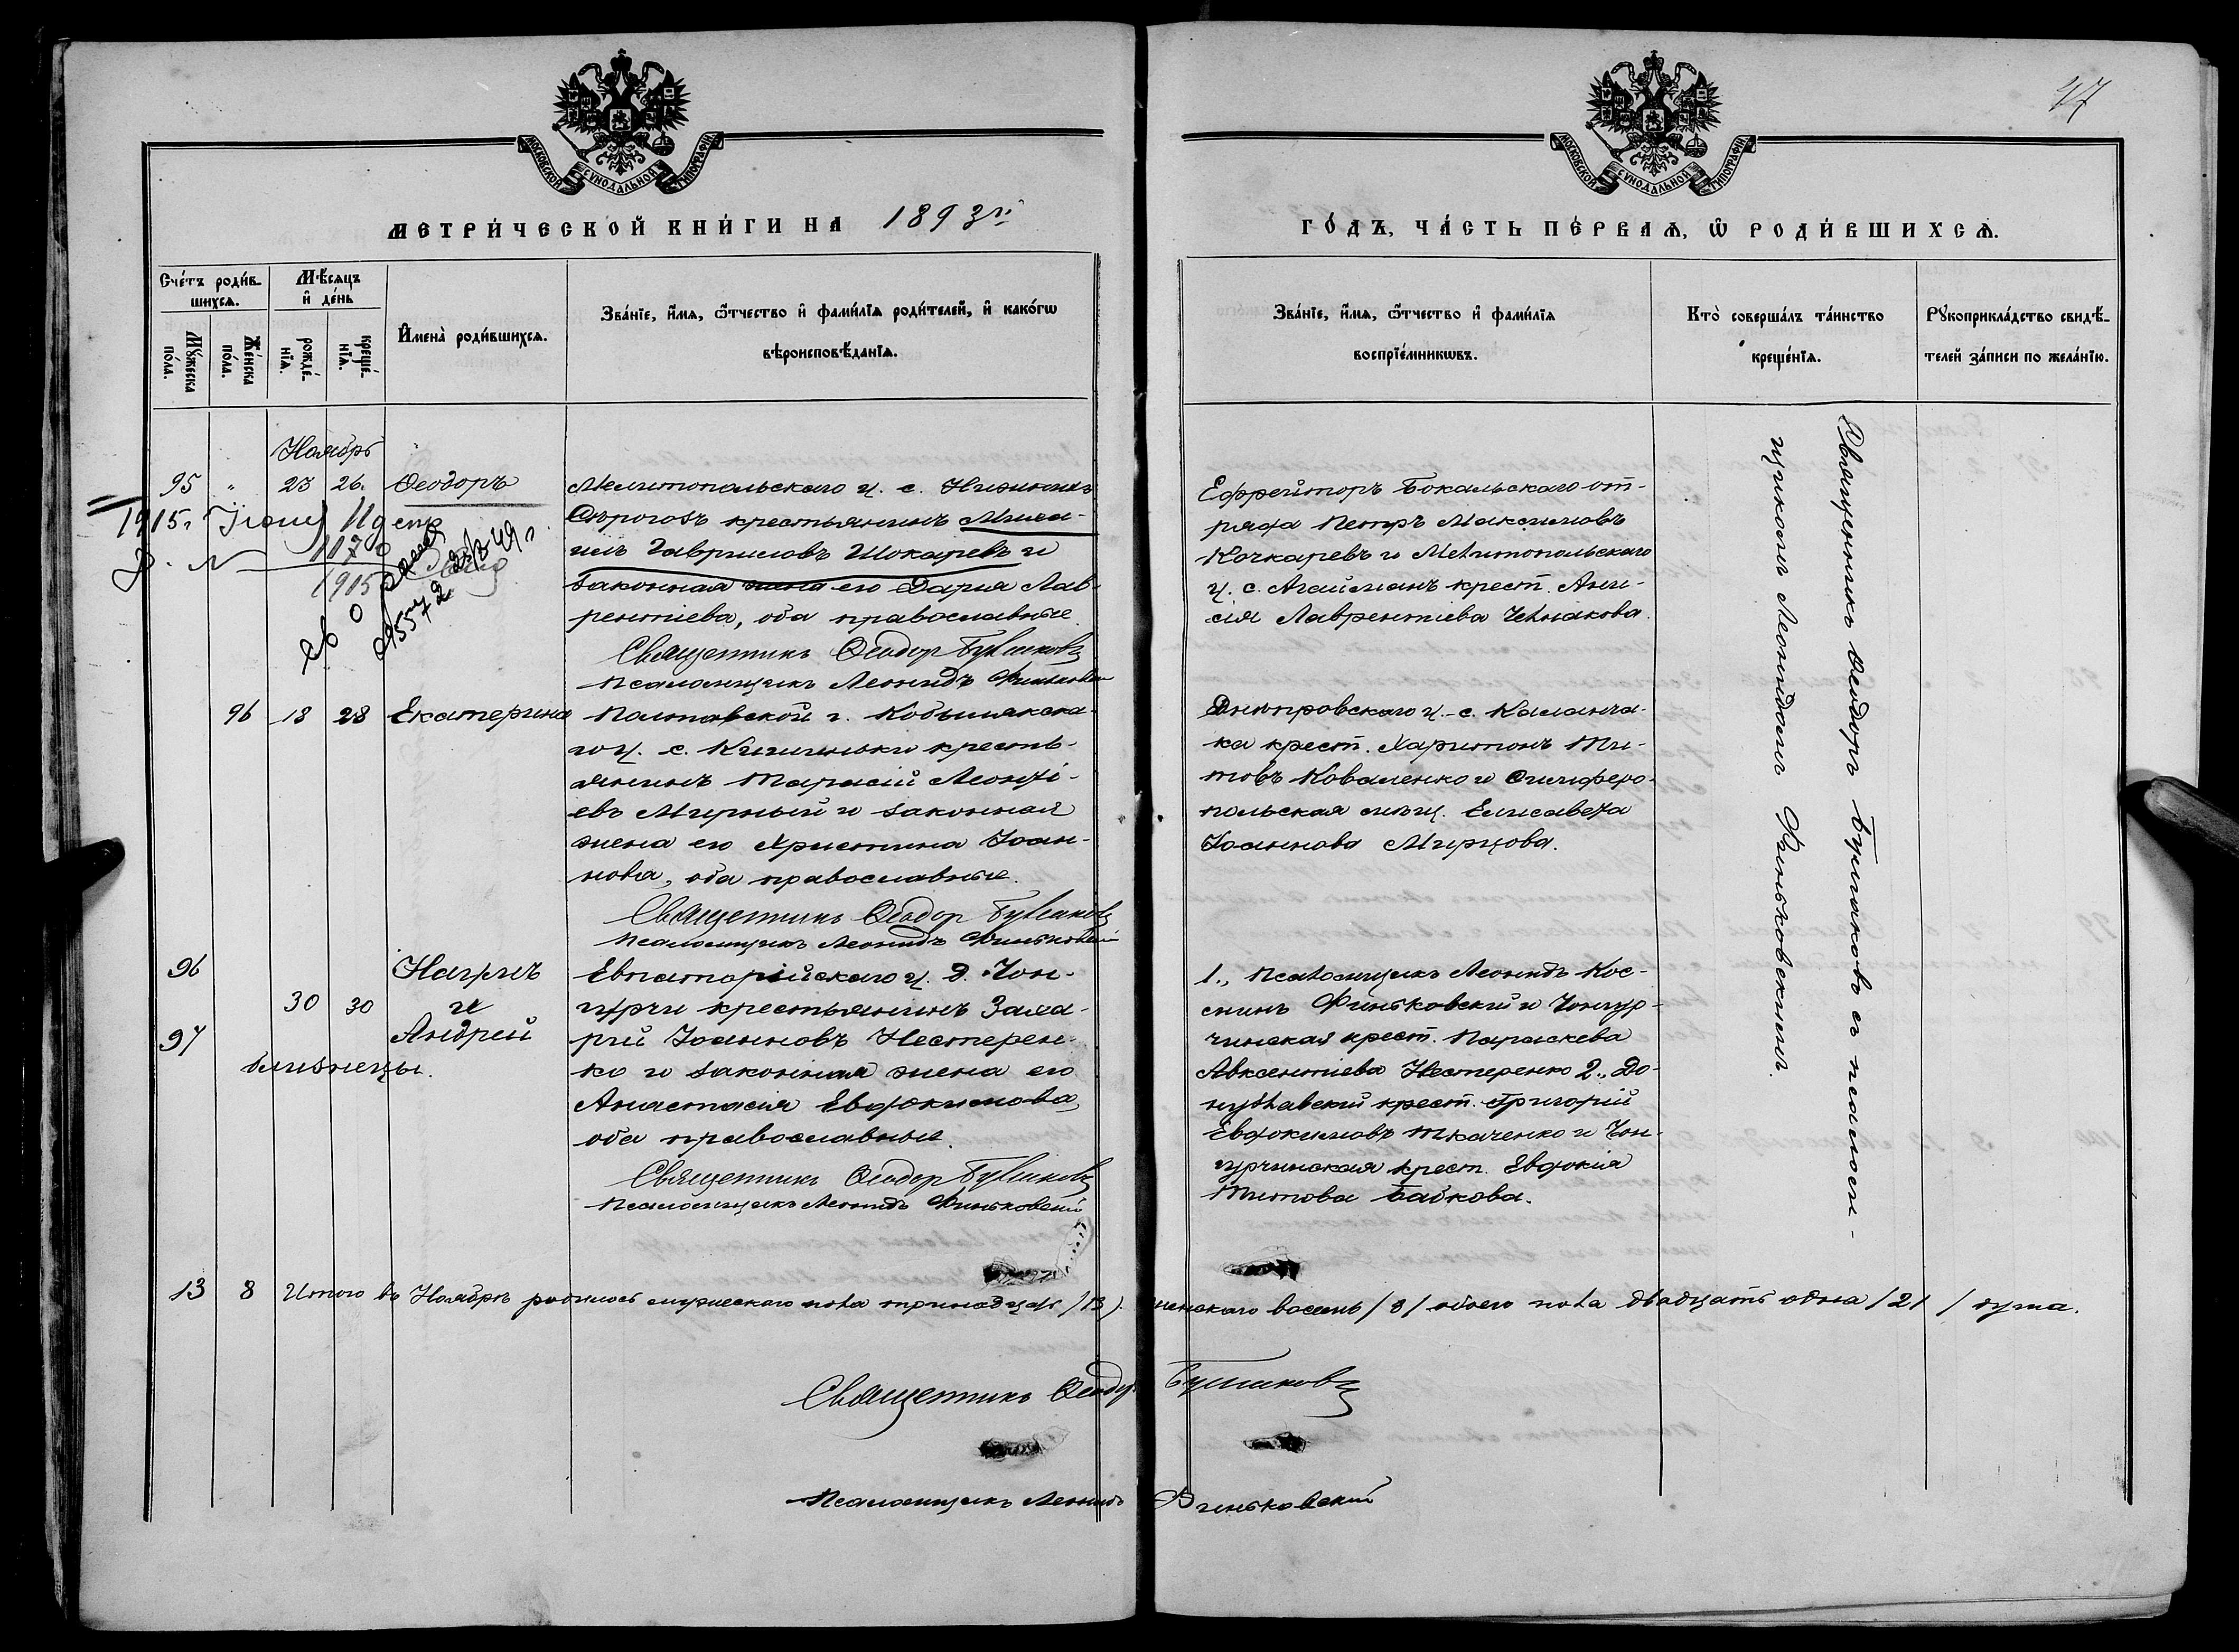 47
МОСКОВСКОЙ СѴНОДАЛЬНОЙ ТИПОГРАФІИ
МОСКОВСКОЙ СѴНОДАЛЬНОЙ ТИПОГРАФІИ
МЕТРИ́ЧЕСКОЙ КНИ́ГИ НА 1893й
ГО́ДЪ, ЧА́СТЬ ПЕ́РВАѦ, Ѡ҆ РОДИ́ВШИХСѦ.
Сче́тъ роди́в-
шихсѧ.
Мꙋ́жеска
по́ла.
Же́нска
по́ла.
Мѣ́сѧцъ
и҆ де́нь
рожде́-
нїѧ.
креще́-
нїѧ.
И҆мена̀ роди́вшихсѧ.
Зва́нїе, и҆́мѧ, ѻ҆́тчество и҆ фами́лїѧ роди́телей, и҆ како́гѡ
вѣроисповѣ́данїѧ.
Зва́нїе, и҆́мѧ, ѻ҆́тчество и҆ фами́лїѧ
воспрїе́мникѡвъ.
Кто̀ соверша́лъ та́инство
креще́нїѧ.
Рꙋкоприкла́дство свидѣ́-
телей за́писи по жела́нїю.
Ноябрь
95 " 23 26. Ѳеодоръ
Мелитопольскаго у. с. Нижнихъ
Сѣрогозъ крестьянинъ Миха-
илъ Гавриловъ Шокаревъ и
законная жена его Дарія Лав-
рентіева, оба православные.
Священникъ Ѳеодор Булшаковъ
Псаломщикъ Леонидъ Финьковскій
Ефрейторъ Бокальскаго от-
ряда Петръ Максимовъ
Кочкаревъ и Мелитопольскаго
у. с. Агайманъ крест. Ани-
сія Лаврентіева Челнакова.
1915г.
1170
1915
96 18 28 Екатерина
Полтавской г. Кобылякска-
го у. с. Кишиньки кресть-
янинъ Тарасій Леонті-
евъ Мирный и законная
жена его Христина Іоан-
нова, оба православные.
Священникъ Ѳеодор Булшаковъ
Псаломщикъ Леонидъ Финьковскій
Днѣпровскаго у. с. Каланча-
ка крест. Харитонъ Ти-
товъ Коваленко и Симферо-
польская мѣщ. Елисавета
Іоаннова Мирцова.
96 Наумъ
30 30 и
97 Андрей
близнецы.
Евпаторійскаго у. д. Чон-
гурчи крестьянинъ Заха-
рій Іоанновъ Нестерен-
ко и законная жена его
Анастасія Евдокимова,
оба православные.
Священникъ Ѳеодор Булшаковъ
Псаломщикъ Леонидъ Финьковскій
1., Псаломщикъ Леонидъ Кос-
минъ Финьковскій и Чонгур-
чинская крест. Параскева
Авксентіева Нестеренко 2., До-
нузлавскій крест. Григорій
Евдокимовъ Ткаченко и Чон-
гурчинская крест. Евдокія
Титова Бабкова.
Священникъ Ѳеодоръ Булшаковъ съ псалом-
щикомъ Леонидомъ Финьковскимъ.
13 8 Итого въ Ноябрѣ родилось мужескаго пола тринадцать /13/. женскаго восемь /8/ обоего пола двадцать одна /21/ душа.
Священникъ Ѳеодоръ Булшаковъ
Псаломщикъ Леонидъ Финьковскій